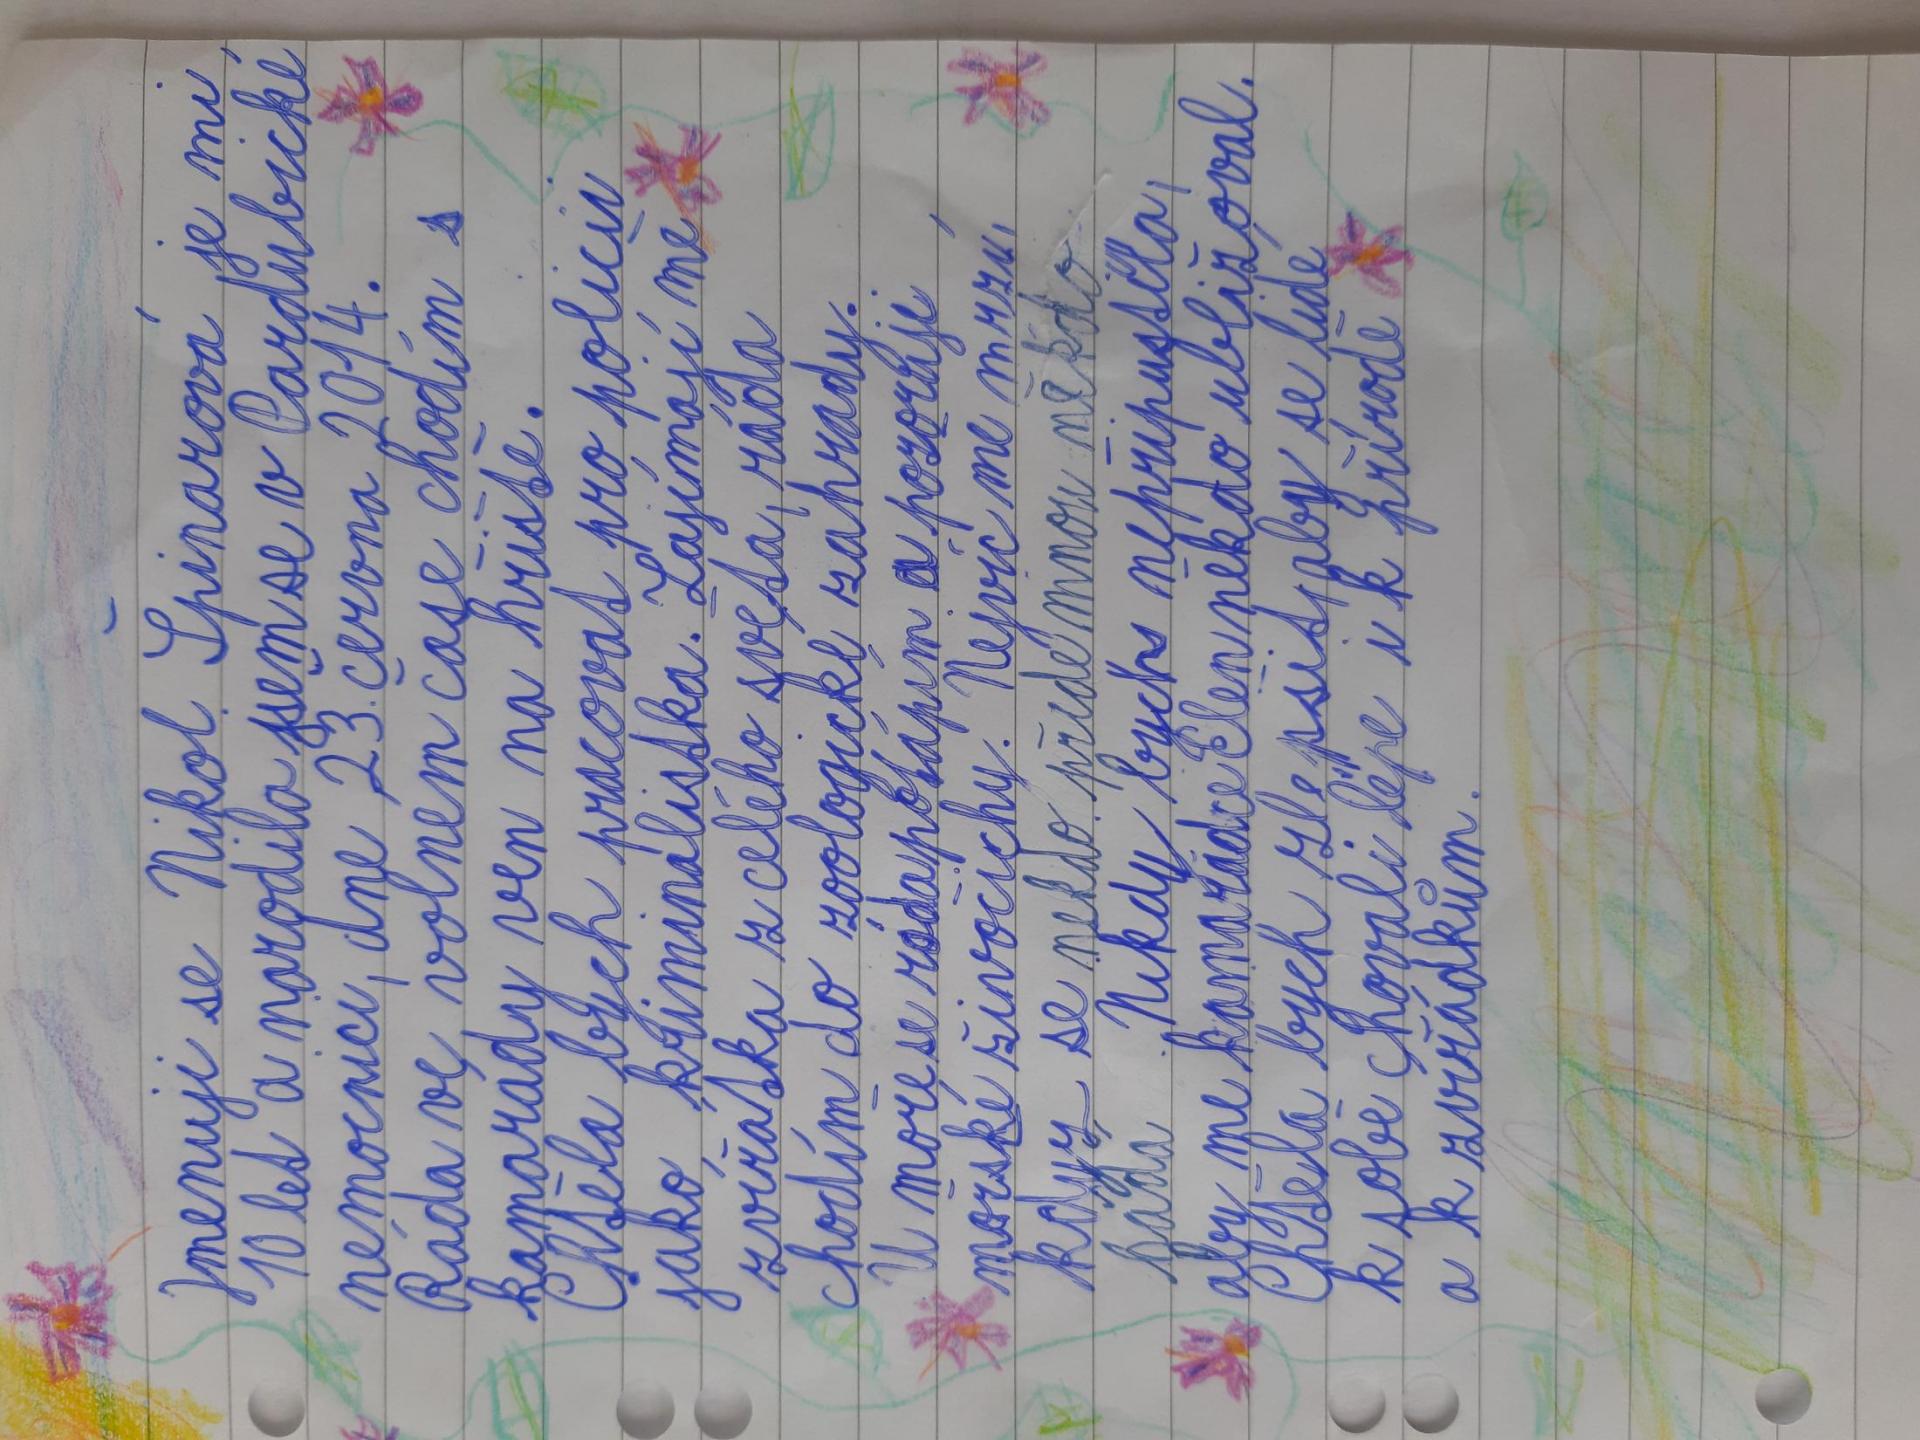 Jmenuji se Nikol Špinarová je mi
10 let a narodila jsem se v Pardubické
nemocnici, dne 23. června 2014.
Ráda ve volném čase chodím s
kamarády ven na hřiště.
Chtěla bych pracovat pro policii
jako kriminalistka. Zajímají mě
zvířátka z celého světa, ráda
chodím do zoologické zahrady.
U moře se ráda potápím a pozoruji
mořské živočichy. Nejvíc mě mrzí,
když se někdo přidemnou někdo
hádá. Nikdy bych nepřipustila,
aby mé kamarádce Elen někdo ubližoval.
Chtěla bych zlepšit, aby se lidé
k sobě chovali lépe i k přírodě
a k zvířátkům.